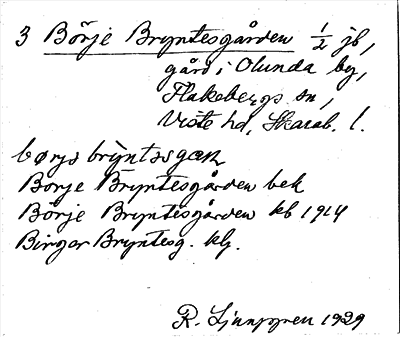 3 Börje Bryntesgården 1/2 jb,
gård i Olunda by,
Flakebergs sn,
Viste hd, Skarab. l.
børjə brỳntəsgɑɳ
Börje Bryntesgården bek
Börje Bryntesgården kb 1914
Birger Bryntesg. klg.
R. Ljunggren 1929